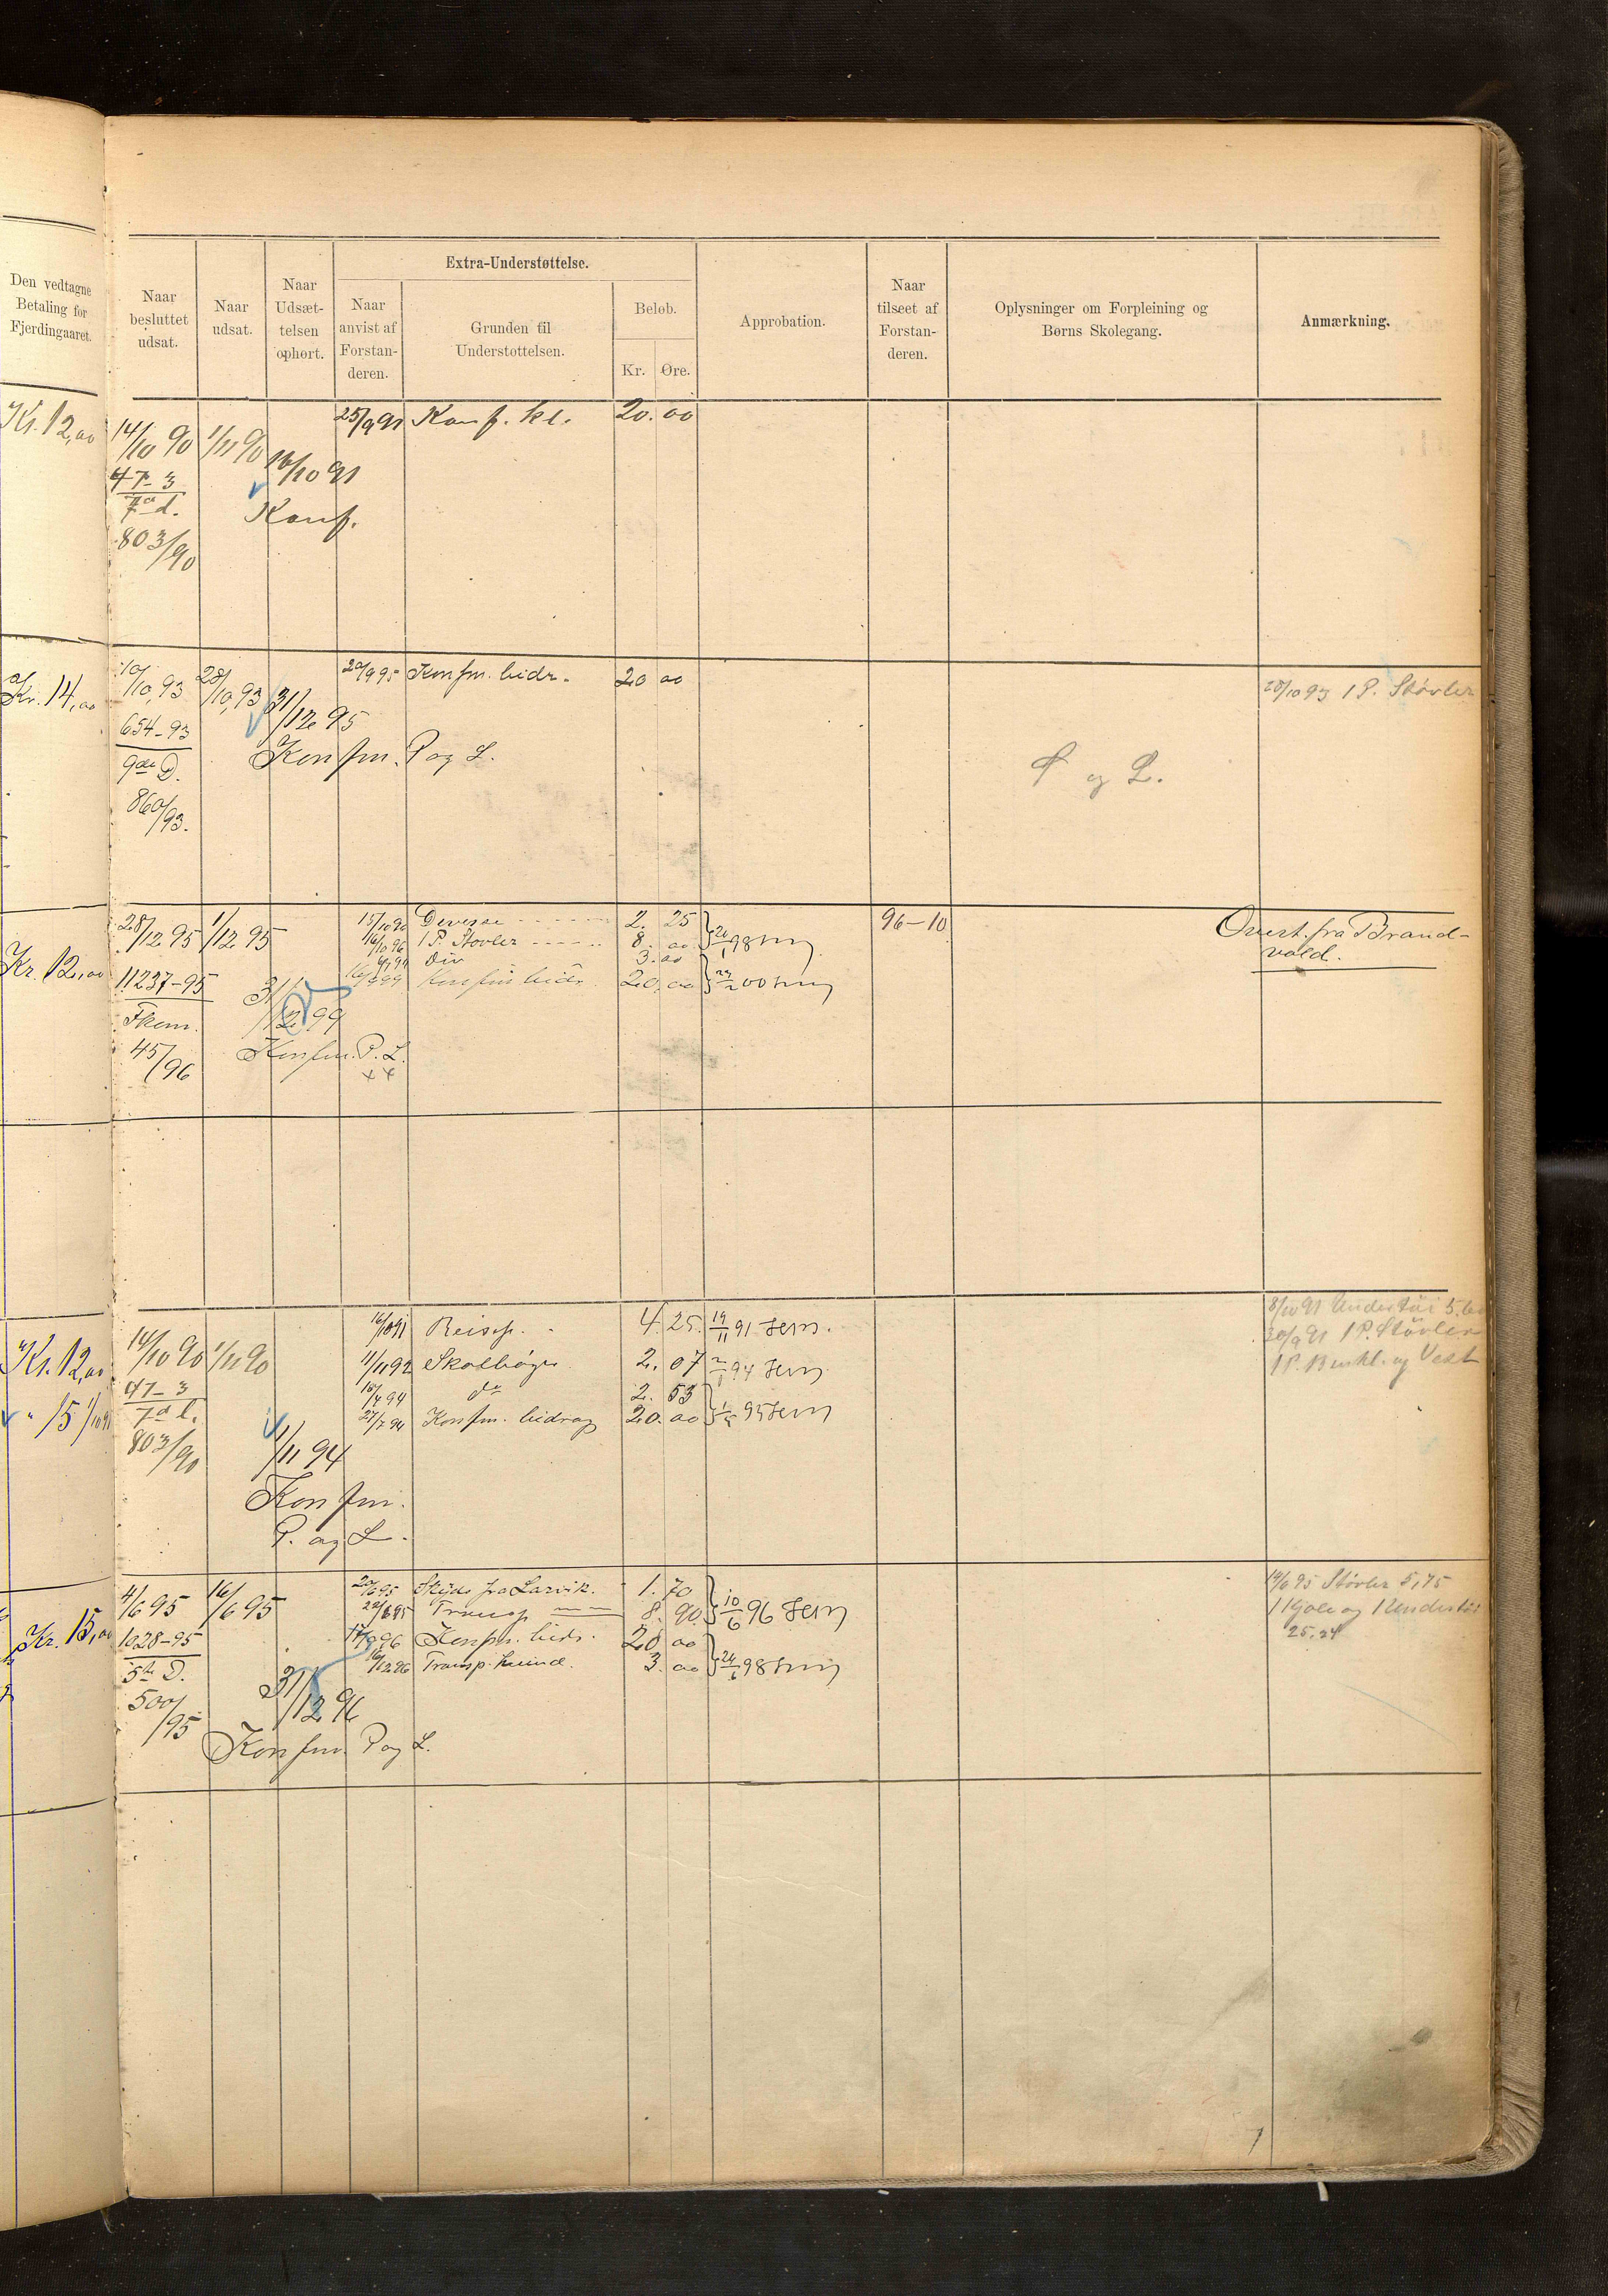 Den vedtagne
Betaling for
Fjerdingaaret.
Naar
besluttet
udsat.
Naar
udsat.
Naar
Udsæt-
telsen
ophørt.
Extra-Understøttelse.
Naar
anvist af
Forstan-
deren.
Grunden til
Understøttelsen.
Beløb.
Kr. Øre.
Approbation.
Naar
tilseet af
Forstan-
deren.
Oplysninger om Forpleining og
Børns Skolegang.
Anmærkning.
Kr. 12,00
14/10 90
47-3
7de d.
803/90
1/11 90
16/10 91
Konf.
25/9 91 Konf. kl. 20.00
Kr. 14,00
10/10,93
654-93
9de D.
860/93.
28/10,93
31/12 95
Konfm. P og L.
20/9 95 Konfm. bidr. 20 00
P og L.
28/10 93 1 P. Støvler
Kr. 12,00
28/12 95
11237-95
Fkom.
45/96
1/12 95
31/12 99
Konfm. P. L.
15/10 96 Diverse 2. 25
16/10 96 1 P. Støvler 8. 00
Div 3.00
Konfms bidr. 20.00
96-10
Overf. fra Brand-
vold.
Kr. 12,00
" 15 1/10 91
14/10 90
47-3
7de d.
803/90
1/11 90
1/11 94
Konfm.
P. og L.
16/10 91 Reisep. 4.25. 14/11 91 Jern.
11/11 92 Skolbøger 2.07
do 2. 53
27/7 94 Konfm. bidrag 20.00
8/10 91 Undertøi 5.60
30/9 91 1 P. Støvler
1 P. Benkl. og Vest
Kr. 15,00
4/6 95
1028-95
5te D.
500/95
16/6 95
31/12 96
Konfm. P og L.
20/6 95 Skyds fra Larvik. 1.70
22/6 95 Transp 8.90 10/6 96 Jern
17/9 96 Konfm. bidr. 20 00
16/12 96 Transp. 3. 00
14/6 95 Støvler 5,75
1 Kjole og 1 Undertøi
25.24